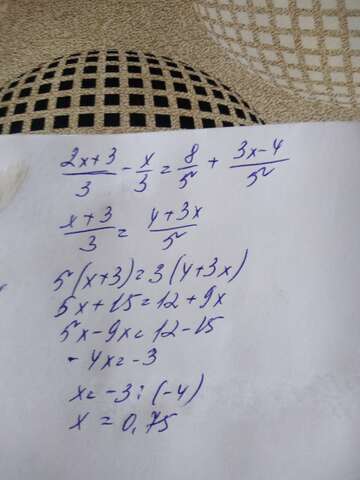 (2x+3)/3 - x/3 = 8/5 + (3x-4)/5
(x+3)/3 = (4+3x)/5
5(x+3)=3(4+3x)
5x+15=12+9x
5x-9x=12-15
-4x=-3
x=-3:(-4)
x=0,75